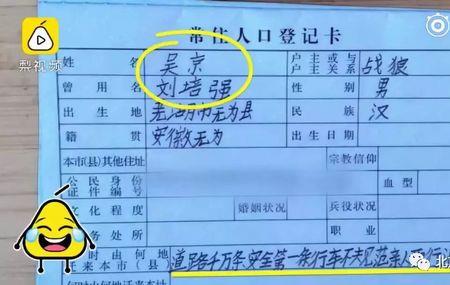 梨视频
常住人口登记卡
姓 名 吴京 户主或与户主关系 战狼
曾用名 刘培强 性别 男
出生地 芜湖市无为县 民族 汉
籍贯 安徽无为 出生日期
本市(县)其他住址 宗教信仰
公民身份证件编号 血型
文化程度 婚姻状况 兵役状况
务处所 职业
时由何地迁来本市(县) 道路千万条安全第一条行车不规范亲人两行
北